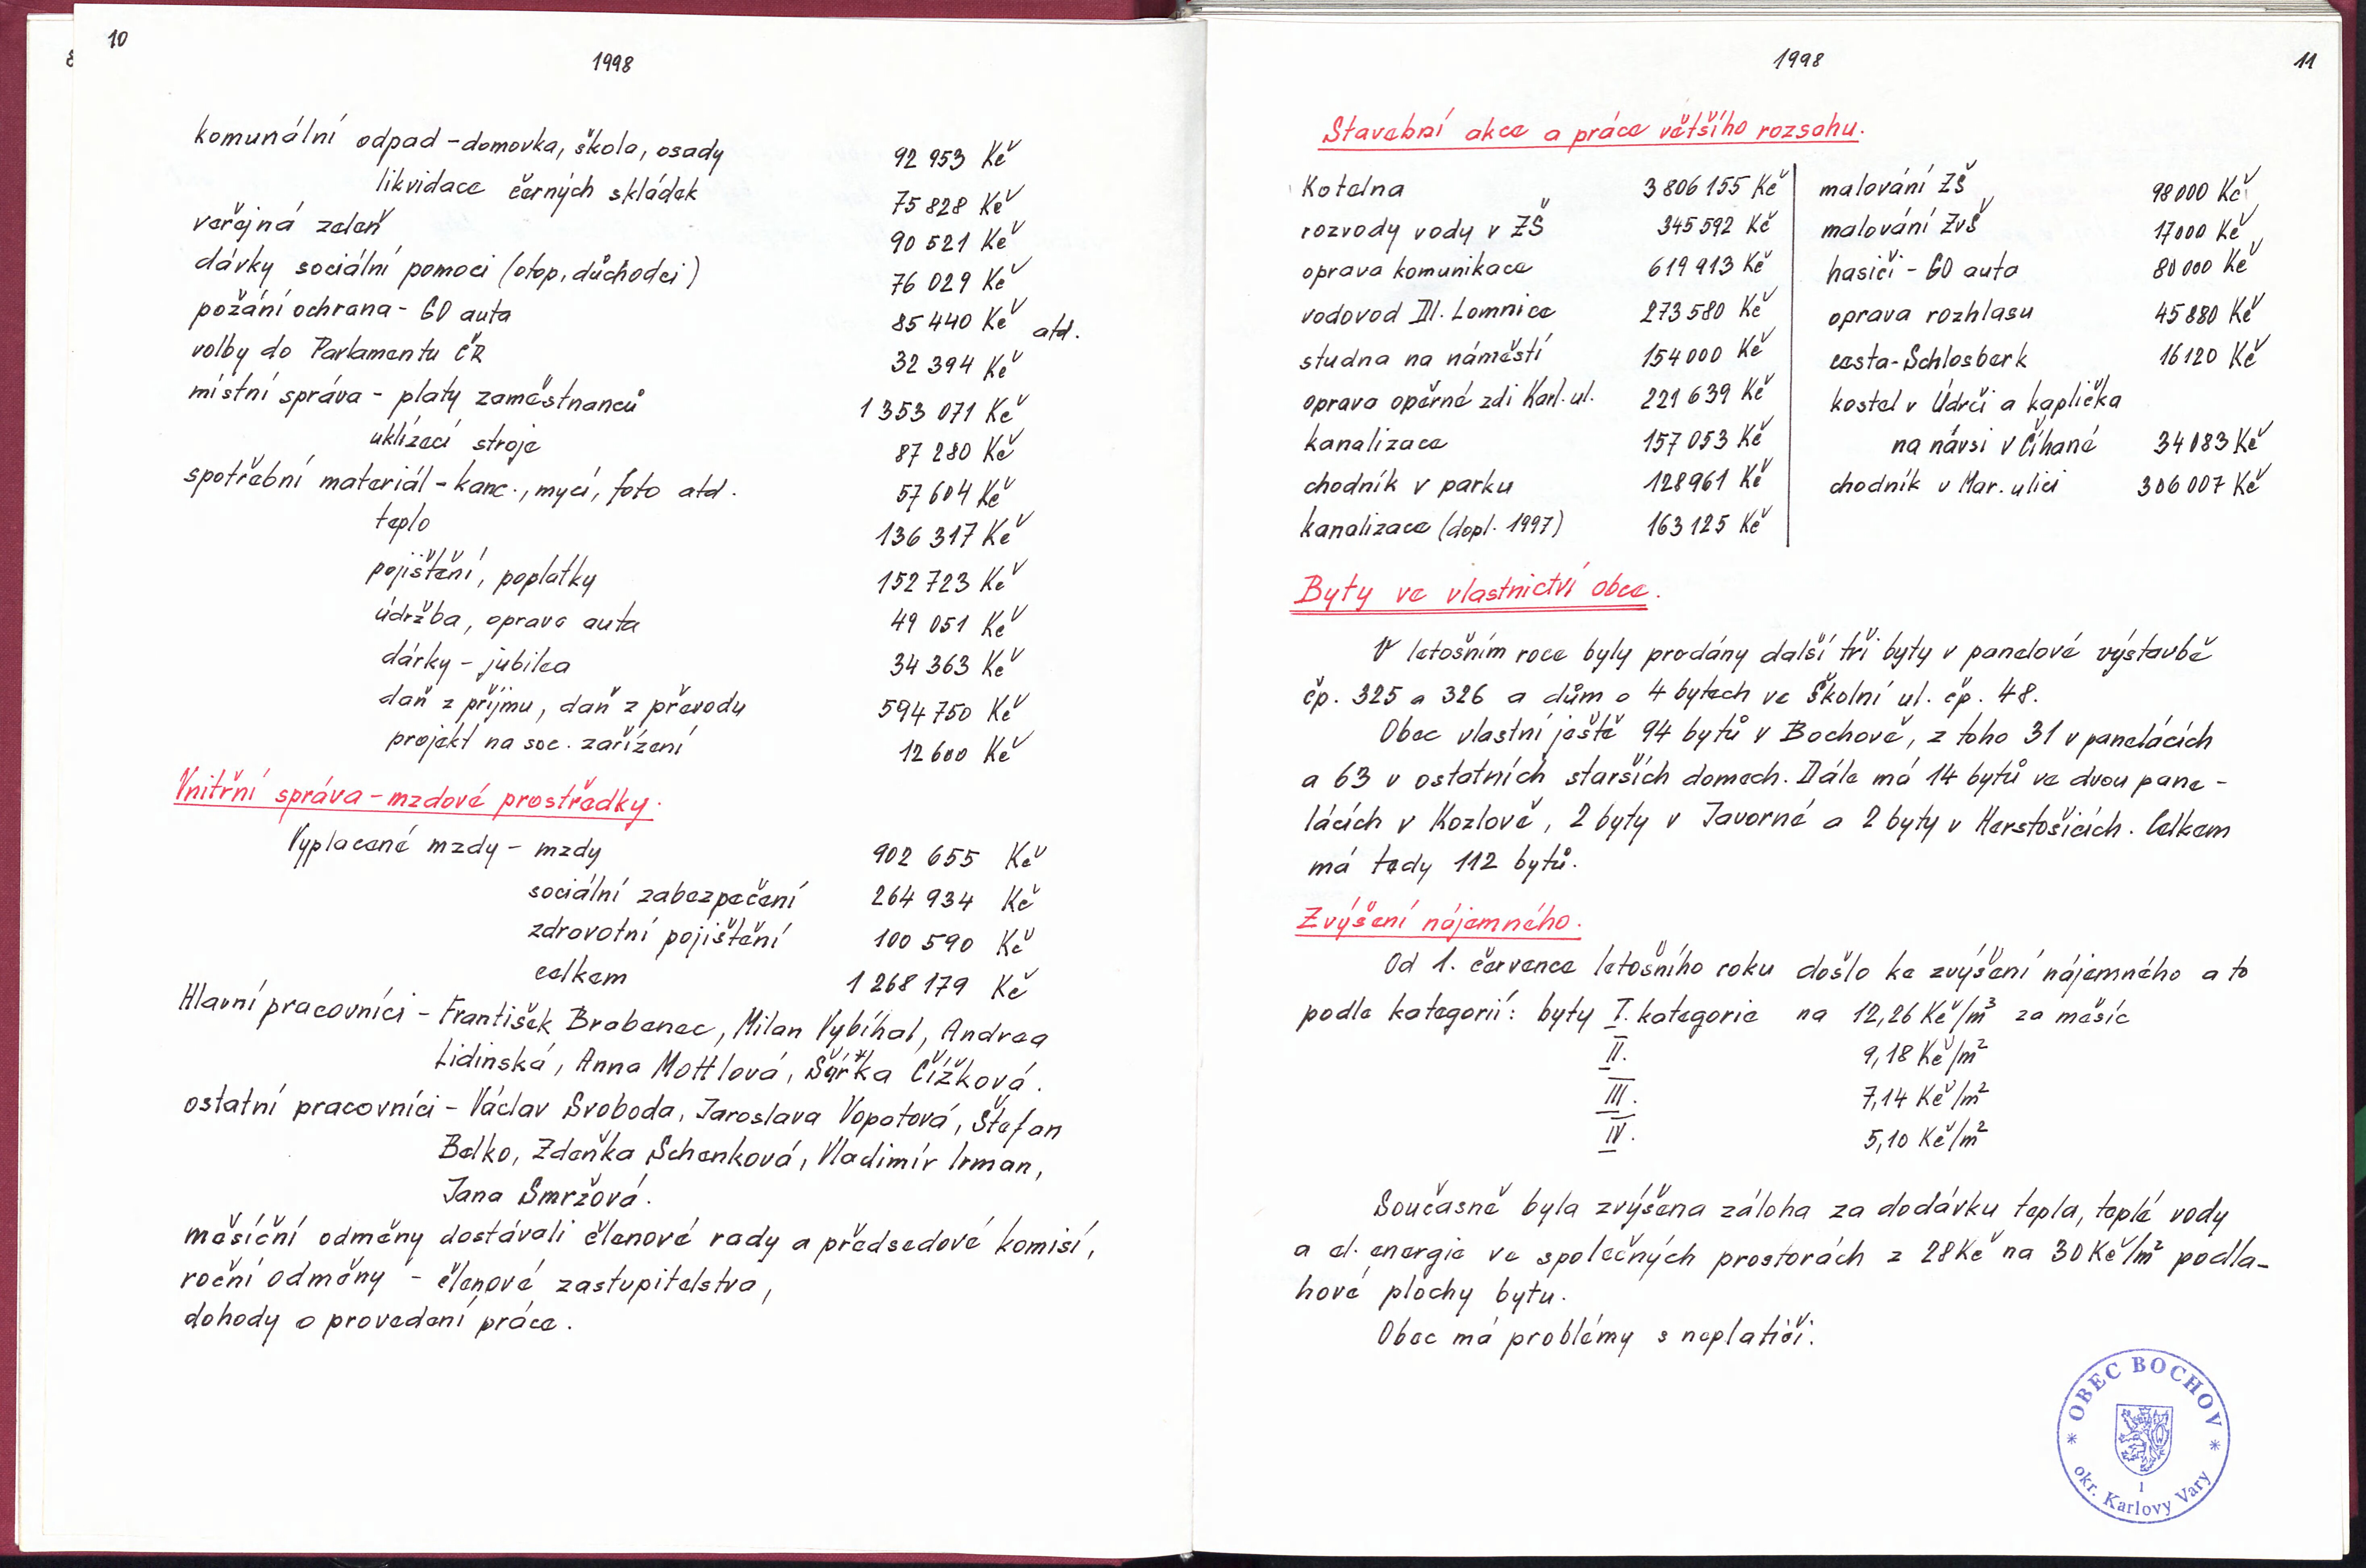 10
1998
komunální odpad - domovka, škola, osady 92 953 Kč
likvidace černých skládek 75 828 Kč
veřejná zeleň 90 521 Kč
dávky sociální pomoci (otop, důchodci) 76 029 Kč
požání ochrana - GO auta 85 440 Kč atd.
volby do Parlamentu ČR 32 394 Kč
místní správa - platy zaměstnanců 1 353 071 Kč
uklízecí stroje 87 280 Kč
spotřební materiál - kanc., mycí, foto atd. 57 604 Kč
teplo 136 317 Kč
pojištění, poplatky 152 723 Kč
údržba, oprava auta 49 051 Kč
dárky - jubilea 34 363 Kč
daň z příjmu, daň z převodu 594 750 Kč
projekt na soc. zařízení 12 600 Kč
Vnitřní správa - mzdové prostředky.
Vyplacené mzdy - mzdy 902 655 Kč
sociální zabezpečení 264 934 Kč
zdravotní pojištění 100 590 Kč
celkem 1 268 179 Kč
Hlavní pracovníci - František Brabenec, Milan Vybíhal, Andrea
Lidinská, Anna Mottlová, Šárka Čížková.
ostatní pracovníci - Václav Svoboda, Jaroslava Vopatová, Štefan
Belko, Zdeňka Schenková, Vladimír Irman,
Jana Smržová.
měsíční odměny dostávali členové rady a předsedové komisí,
roční odměny - členové zastupitelstva,
dohody o provedení práce.
1998
11
Stavební akce a práce většího rozsahu.
Kotelna 3 806 155 Kč malování ZŠ 98 000 Kč
rozvody vody v ZŠ 345 592 Kč malování ZvŠ 17 000 Kč
oprava komunikace 619 913 Kč hasiči - GO auta 80 000 Kč
vodovod Dl. Lomnice 273 580 Kč oprava rozhlasu 45 880 Kč
studna na náměstí 154 000 Kč cesta - Schlosberk 16 120 Kč
oprava opěrné zdi Karl. ul. 221 639 Kč kostel v Údrči a kaplička
kanalizace 157 053 Kč na návsi v Číhané 34 083 Kč
chodník v parku 128 961 Kč chodník v Mar. ulici 306 007 Kč
kanalizace (dopl. 1997) 163 125 Kč
Byty ve vlastnictví obce.
V letošním roce byly prodány další tři byty v panelové výstavbě
čp. 325 a 326 a dům o 4 bytech ve Školní ul. čp. 48.
Obec vlastní ještě 94 bytů v Bochově, z toho 31 v panelácích
a 63 v ostatních starších domech. Dále má 14 bytů ve dvou pane-
lácích v Kozlově, 2 byty v Javorné a 2 byty v Herstošicích. Celkem
má tedy 112 bytů.
Zvýšení nájemného.
Od 1. července letošního roku došlo ke zvýšení nájemného a to
podle kategorií: byty I. kategorie na 12,26 Kč/m³ za měsíc
II. 9,18 Kč/m²
III. 7,14 Kč/m²
IV. 5,10 Kč/m²
Současně byla zvýšena záloha za dodávku tepla, teplé vody
a el. energie ve společných prostorách z 28 Kč na 30 Kč/m² podla-
hové plochy bytu.
Obec má problémy s neplatiči.
* OBEC BOCHOV *
1
okr. Karlovy Vary